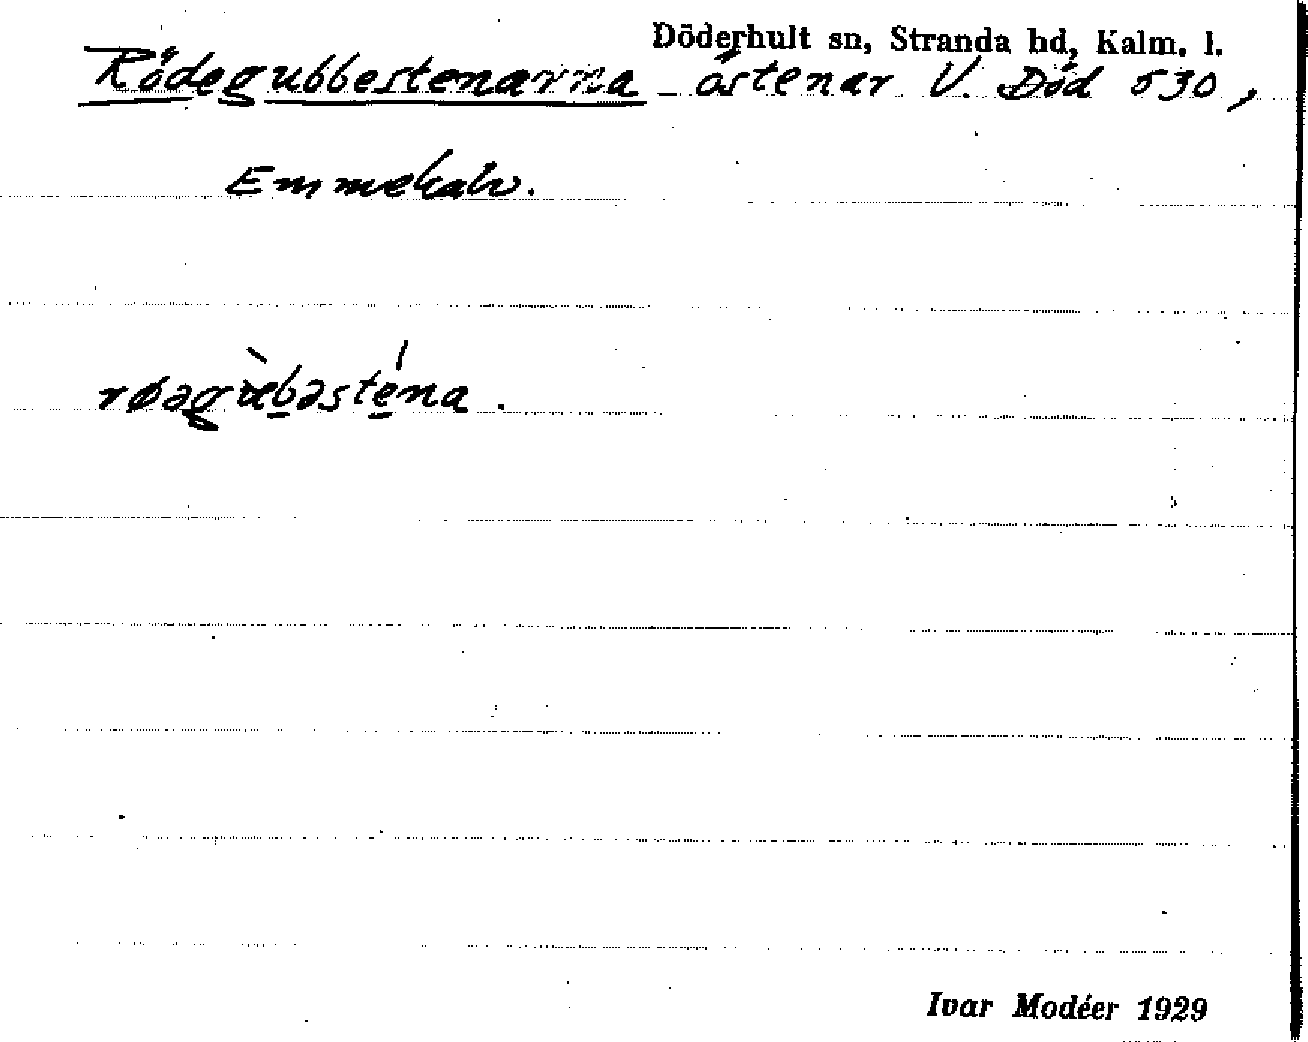 Döderhult sn, Stranda hd, Kalm. l.
Rödegubbestenarna östenar V. Död 530,
Emmekalv.
røəgùbəsténa.
Ivar Modéer 1929